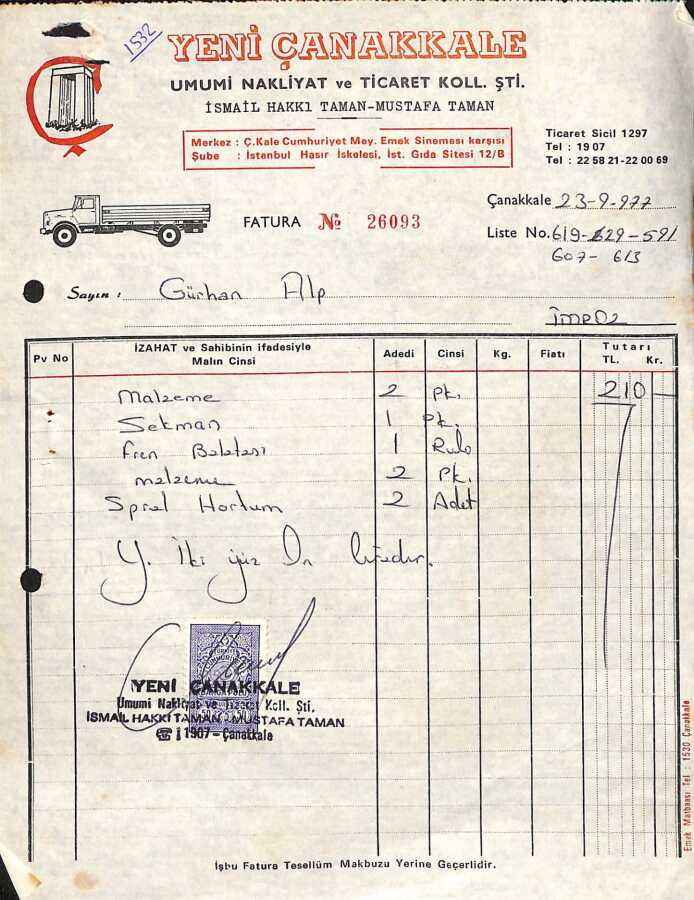 1532
YENİ ÇANAKKALE
UMUMİ NAKLİYAT ve TİCARET KOLL. ŞTİ.
İSMAİL HAKKI TAMAN-MUSTAFA TAMAN
Merkez : Ç.Kale Cumhuriyet Mey. Emek Sineması karşısı
Şube : İstanbul Hasır İskelesi, İst. Gıda Sitesi 12/B
Ticaret Sicil 1297
Tel : 19 07
Tel : 22 58 21-22 00 69
FATURA № 26093
Çanakkale 23-9-977
Liste No. 619-629-591
607- 613
Sayın : Gürhan Alp
İmroz
Pv No İZAHAT ve Sahibinin ifadesiyle Malın Cinsi Adedi Cinsi Kg. Fiatı Tutarı TL. Kr.
Malzeme 2 Pk. 210 —
Sekman 1 Pk.
Fren Balatası 1 Rulo
malzeme 2 Pk.
Spral Hortum 2 Adet
Y. İki yüz On liradır.
YENİ ÇANAKKALE
Umumi Nakliyat ve Ticaret Koll. Şti.
İSMAİL HAKKI TAMAN - MUSTAFA TAMAN
☎ : 1907 - Çanakkale
Emek Matbaası Tel : 1530 Çanakkale
İşbu Fatura Tesellüm Makbuzu Yerine Geçerlidir.